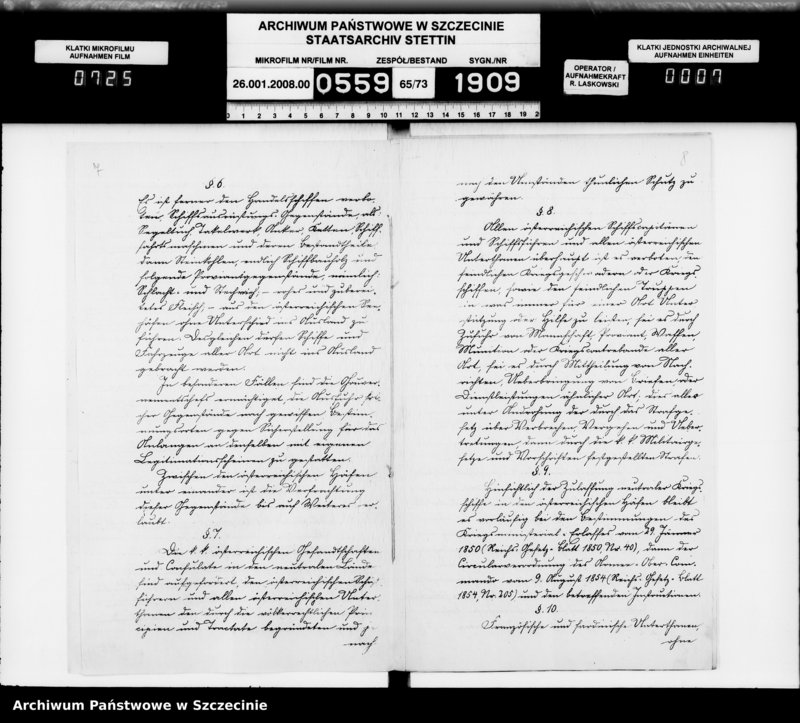 ARCHIWUM PAŃSTWOWE W SZCZECINIE
STAATSARCHIV STETTIN
KLATKI MIKROFILMU
AUFNAHMEN FILM
0725
MIKROFILM NR/FILM NR.
ZESPÓŁ/BESTAND
SYGN./NR
26.001.2008.00
0559
65/73
1909
OPERATOR /
AUFNAHMEKRAFT
R. LASKOWSKI
KLATKI JEDNOSTKI ARCHIWALNEJ
AUFNAHMEN EINHEITEN
0007
0 1 2 3 4 5 6 7 8 9 10 11 12 13 14 15 16 17 18 19 20
7
§. 6.
Es ist ferner den Handelsschiffen verbo-
ten, Schiffsausrüstungs-Gegenstände, als
Segeltuch Takelwerk, Anker, Ketten, Schiff-
fahrtmaschinen und deren Bestandtheile
dann Steinkohlen, endlich Schiffbauholz und
folgende Proviantgegenstände, nämlich:
Schlacht- und Stechvieh, – rohes und zuberei-
tetes Fleisch, – aus den österreichischen See-
häfen ohne Unterschied ins Ausland zu
führen. Desgleichen dürfen Schiffe und
Fahrzeuge aller Art nicht ins Ausland
gebracht werden.
In besonderen Fällen sind die Gouver-
nements ermächtiget, die Ausfuhr sol-
cher Gegenstände nach gewissen Bestim-
mungsorten gegen Sicherstellung für das
Anlangen in denselben mit eigenen
Legitimationsscheinen zu gestatten.
Zwischen den österreichischen Häfen
unter einander ist die Verfrachtung
dieser Gegenstände bis auf Weiteres er-
laubt.
§. 7.
Die k. k. österreichischen Gesandtschaften
und Consulate in den neutralen Lande
sind aufgefordert, den österreichischen Schiffs-
führern und allen österreichischen Unter-
thanen den durch die völkerrechtlichen Prin-
cipien und Tractate begründeten und je
nach
8
nach den Umständen thunlichen Schutz zu
gewähren.
§. 8.
Allen österreichischen Schiffscapitänen
und Schiffsführern und allen österreichischen
Unterthanen überhaupt ist es verboten, den
feindlichen Kriegsgeschwadern oder Kriegs-
schiffen, sowie den feindlichen Truppen
in was immer für einer Art Unter-
stützung oder Hilfe zu leisten, sei es durch
Zufuhr von Mannschaft, Proviant, Waffen
Munition oder Kriegscontrebande aller
Art, sei es durch Mittheilung von Nach-
richten, Ueberbringung von Briefen oder
Dienstleistungen ähnlicher Art, dies alles
unter Androhung der durch das Strafge-
setz über Verbrechen Vergehen und Ueber-
tretungen, dann durch die k. k. Militairge-
setze und Vorschriften festgestellten Strafen.
§. 9.
Hinsichtlich der Zulassung neutraler Kriegs-
schiffe in den österreichischen Häfen bleibt
es vorläufig bei den Bestimmungen des
Kriegsministerial-Erlasses vom 29. Januar
1850 (Reichs-Gesetz-Blatt 1850, Nr. 40), dann der
Circularverordnung des Armee-Ober-Com-
mando vom 9. August 1854 (Reichs-Gesetz-Blatt
1854, Nr. 205) und den betreffenden Instructionen.
§. 10.
Französische und sardinische Unterthanen,
ohne
Archiwum Państwowe w Szczecinie